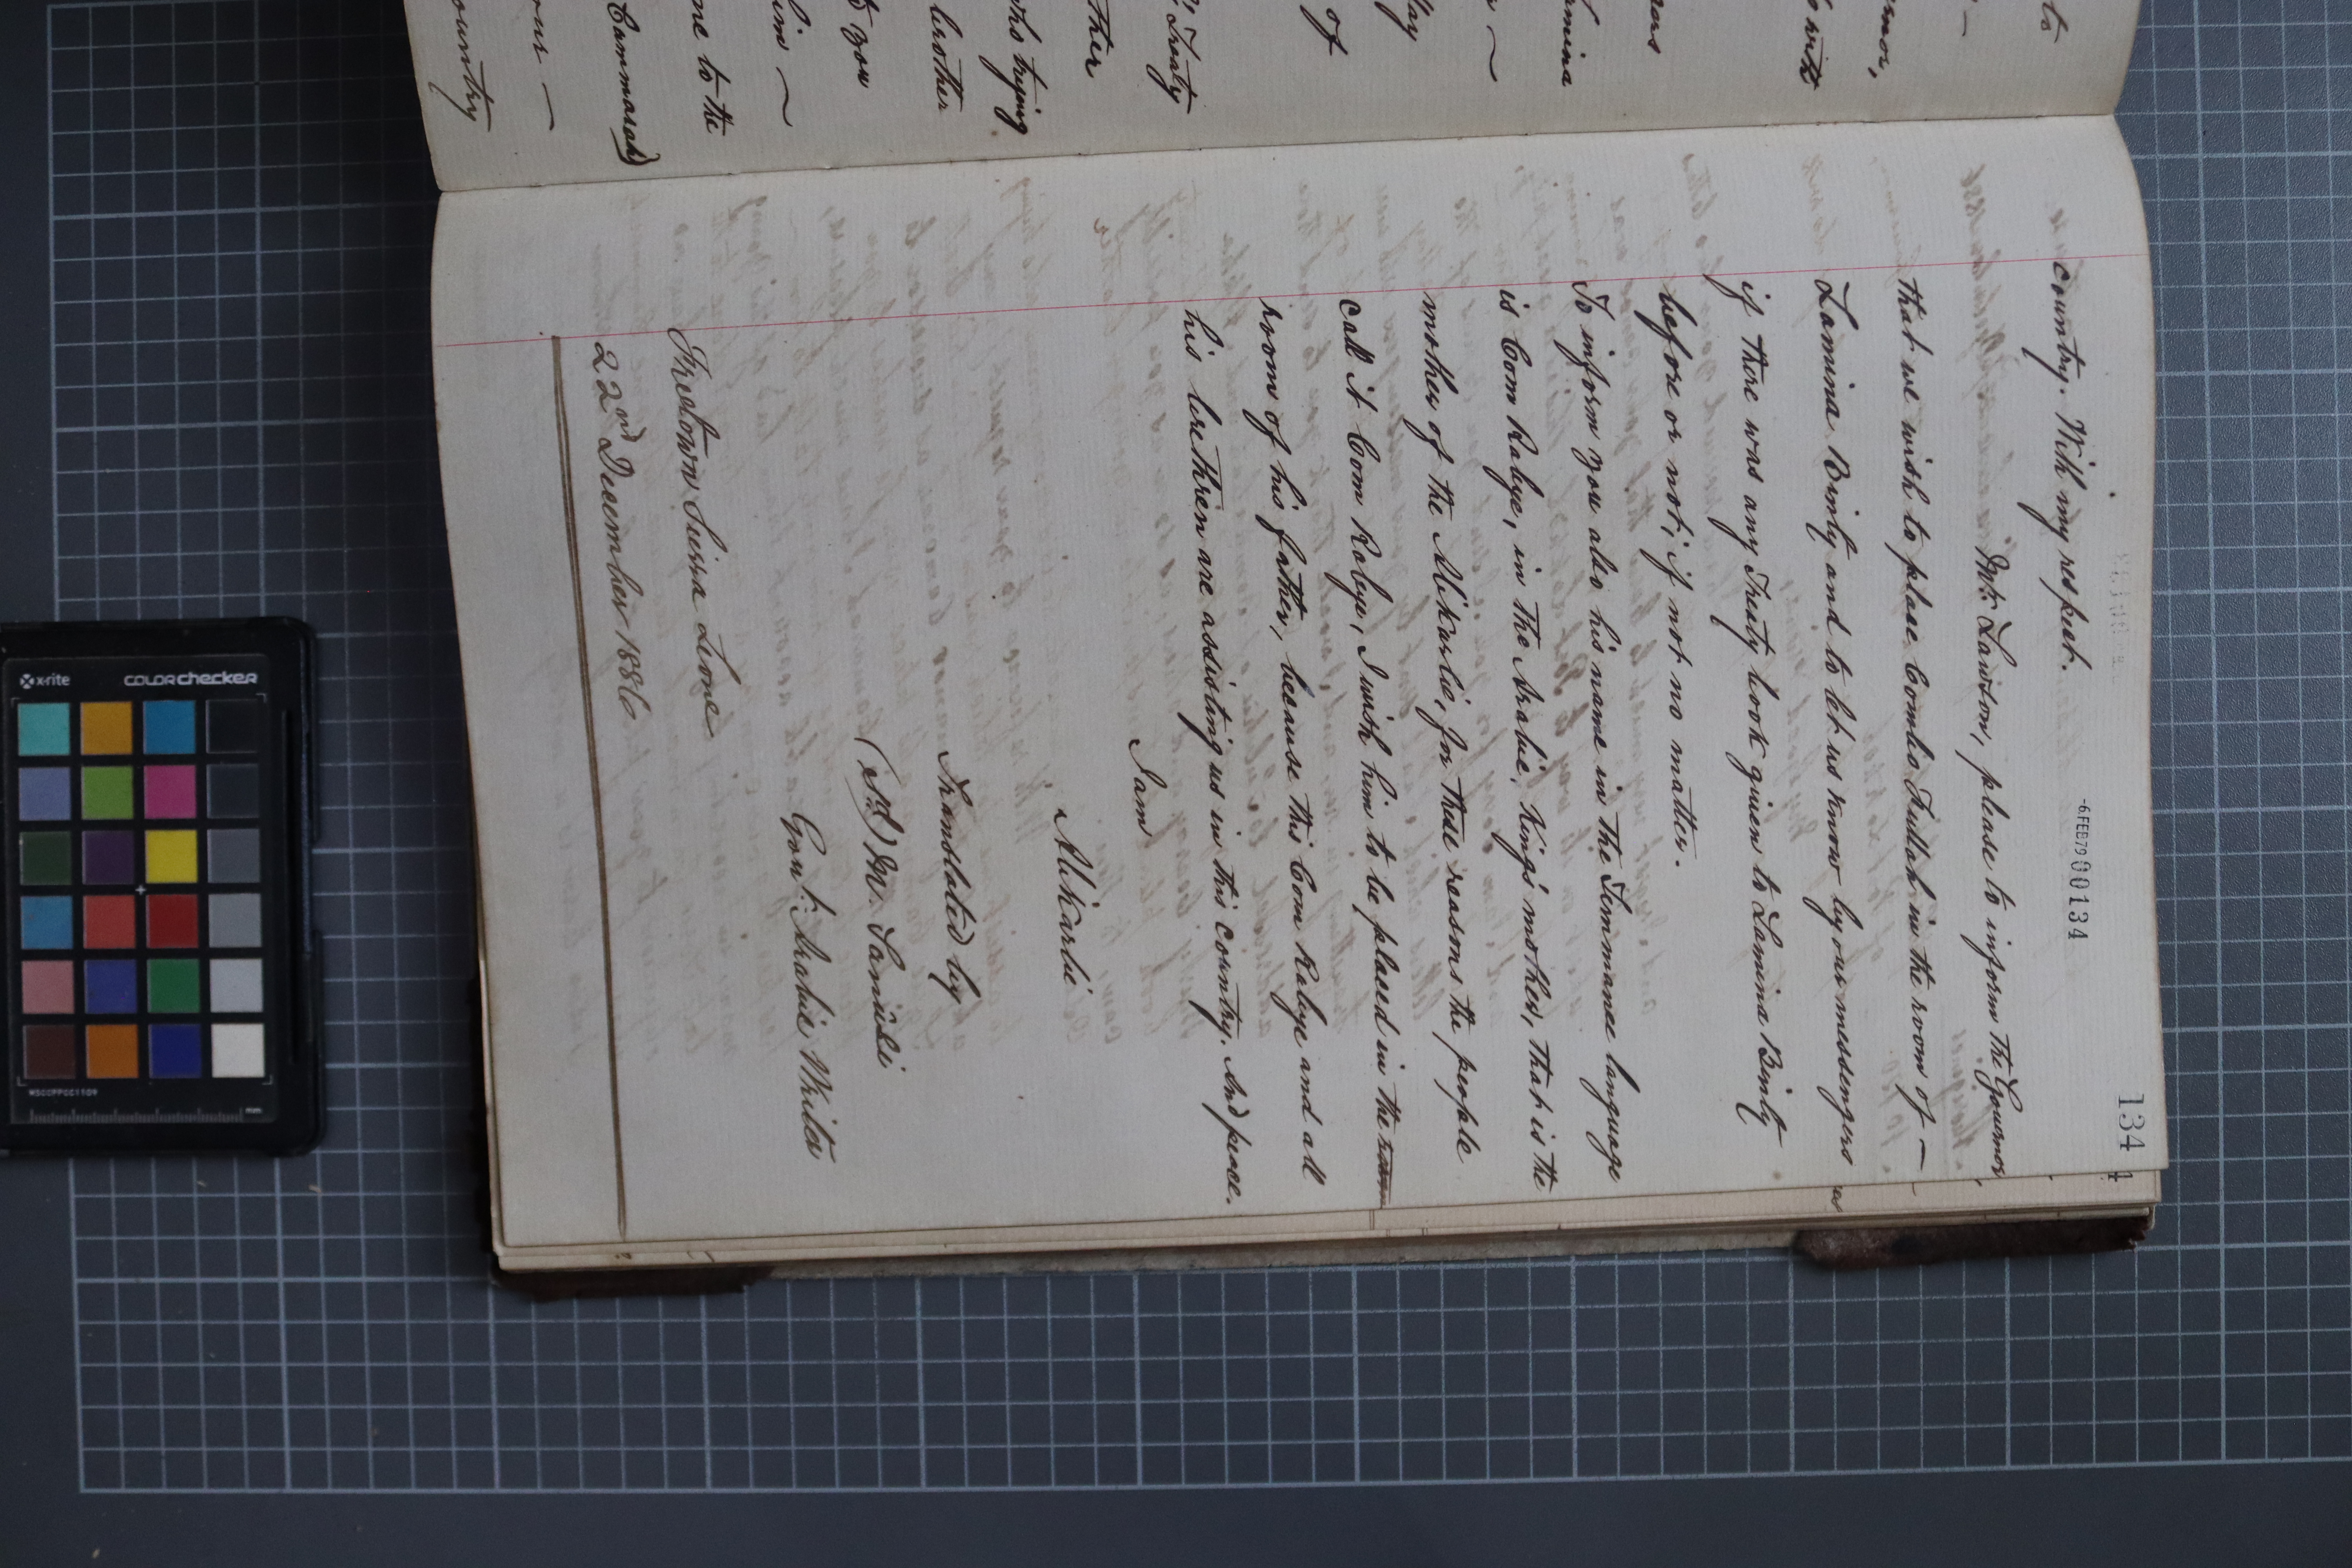 134
-6FEB79 00134
country. With my respect.
Mr. Lawson, please to inform the Governor,
that we wish to place Combo Fullah in the room of —
Lamina Binty and to let us know by our messengers
if there was any Treaty book given to Lamina Binty
before or not; if not no matter.
To inform you also his name in the Timmanee language
is Com Rabye, in the Arabic, King's mother, that is the
mother of the Alikarlie, for these reasons the people
call it Com Rabye, I wish him to be placed in the room
room of his father, because this Com Rabye and all
his brethren are assisting us in this country. And peace.
I am
Alikarlie
Translated by
(sd) M. Sanusi
Govt. Arabic Writer
Freetown Sierra Leone
22nd December 1886
of
ther
brother
me to the
Cammarah)
ountry
Treaty
who trying
to you
x-rite
COLORCHECKER
MSCCPPCC1109
mm